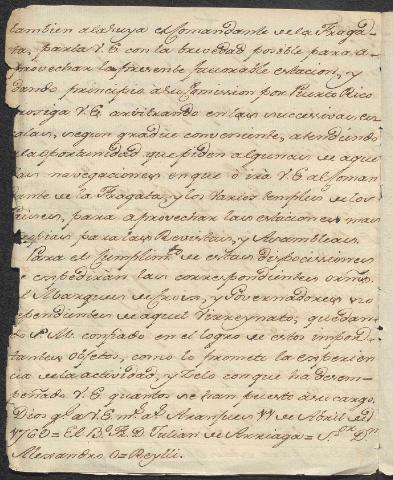 tambien al suya el Comandante de la Fraga-
ta, parta V.E. con la brevedad posible para a-
provechar la presente favorable estacion, y
dando principio a su Comission por Puerto Rico
prosiga V.E. arbitrando en las successivas es-
calas, segun gradue conveniente, atendiendo
a la oportunidad que piden algunas de aque-
las navegaciones en que oira V.E. al Coman-
ante de la Fragata, y los varios temples de los
Paises, para aprovechar las estaciones mas
propias para las Revistas, y Asambleas.
Para el Cumplim.to de estas disposiciones
se expediran las correspondientes orns. a
el Marques de Croix, y Governadores no
dependientes de aquel Virreynato; quedan-
do S.M. confiado en el logro de estos impor-
tantes objetos, como lo promete la experien-
cia de la actividad, y Zelo con que ha desem-
peñado V.E. quantos se han puesto a su cargo.
Dios g.e a V.E. m.s a.s Aranjuez de Abril de
1765 = El B.o Fr. D. Julian de Arriaga = S.or D.n
Alexandro O-Reylli.